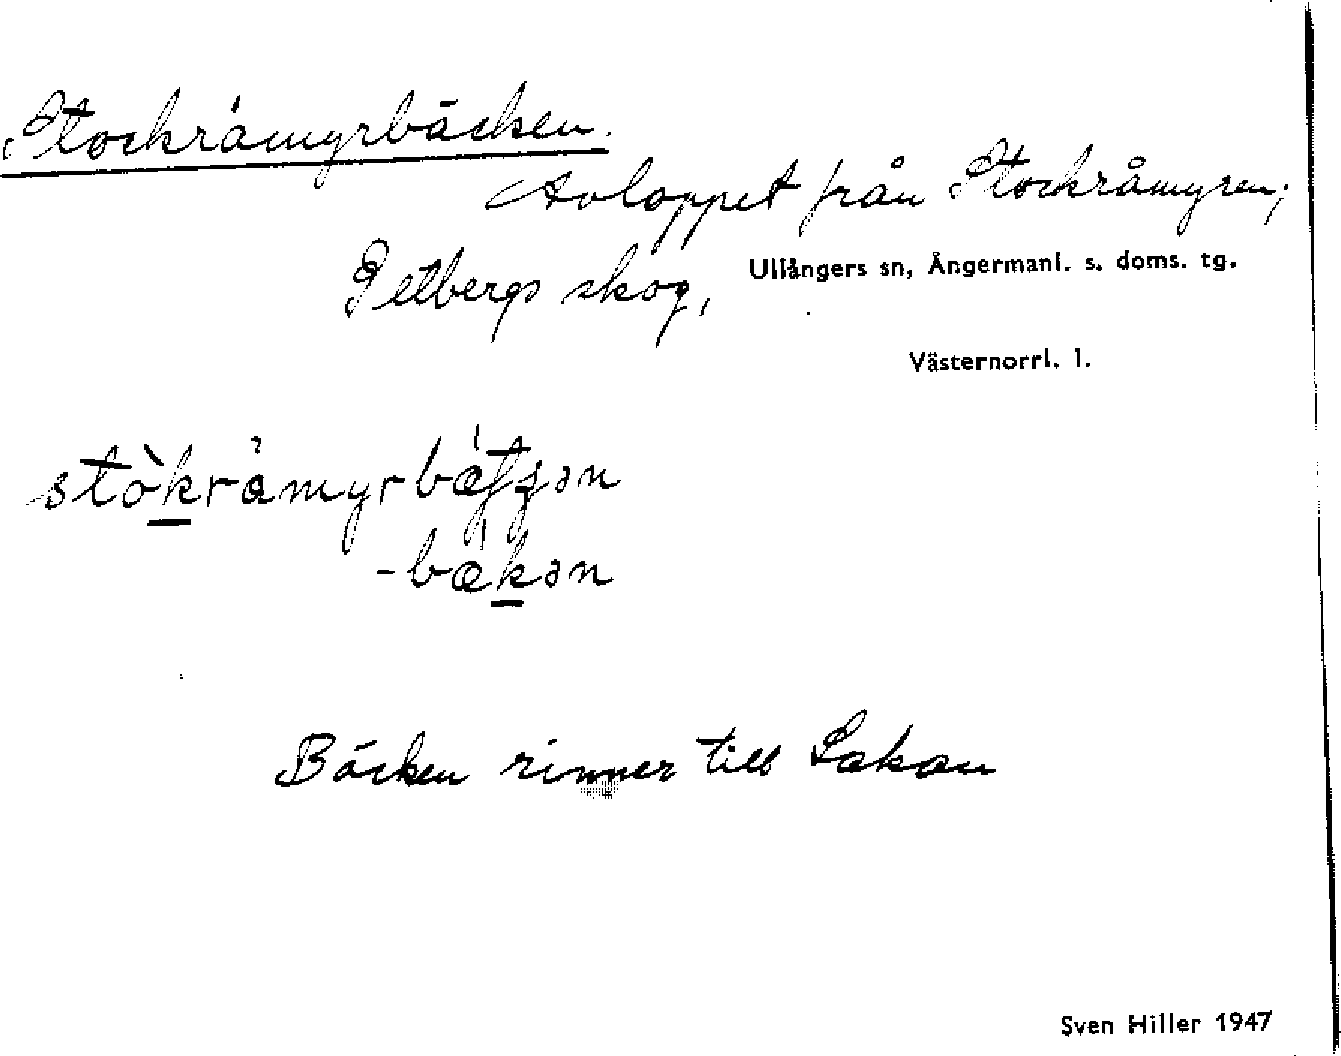 Stockråmyrbäcken.
Avloppet från Stockråmyren;
Getbergs skog, Ullångers sn, Ångermanl. s. doms. tg.
Västernorrl. l.
-bækən
Bäcken rinner till
Sven Hiller 1947